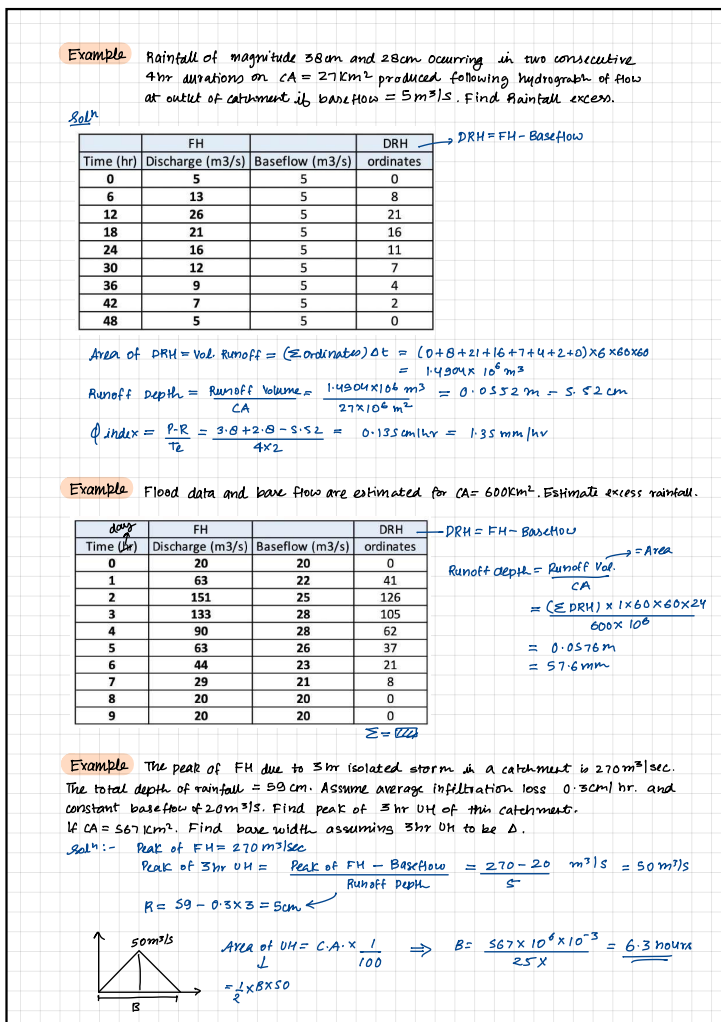 Example Rainfall of magnitude 38cm and 28cm ocurring in two consecutive
4hr durations on CA = 27Km² produced following hydrograph of flow
at outlet of catchment if baseflow = 5m³/s. Find Rainfall excess.
Solⁿ
FH DRH → DRH = FH - Baseflow
Time (hr) Discharge (m3/s) Baseflow (m3/s) ordinates
0 5 5 0
6 13 5 8
12 26 5 21
18 21 5 16
24 16 5 11
30 12 5 7
36 9 5 4
42 7 5 2
48 5 5 0
Area of DRH = Vol. Runoff = (Σ ordinates) Δt = (0+8+21+16+7+4+2+0)×6×60×60
= 1.4904× 10⁶ m³
Runoff Depth = Runoff Volume / CA = 1.4904×10⁶ m³ / 27×10⁶ m² = 0.0552 m = 5.52 cm
ϕ index = P-R / Te = 3.8+2.8-5.52 / 4×2 = 0.135 cm/hr = 1.35 mm/hr
Example Flood data and base flow are estimated for CA= 600Km². Estimate excess rainfall.
day FH DRH — DRH = FH - Baseflow
Time (hr) Discharge (m3/s) Baseflow (m3/s) ordinates
0 20 20 0
1 63 22 41
2 151 25 126
3 133 28 105
4 90 28 62
5 63 26 37
6 44 23 21
7 29 21 8
8 20 20 0
9 20 20 0
Σ =
Runoff depth = Runoff Vol. / CA → = Area
= (Σ DRH) × 1×60×60×24 / 600× 10⁶
= 0.0576m
= 57.6mm
Example The peak of FH due to 3hr isolated storm in a catchment is 270m³/sec.
The total depth of rainfall = 59cm. Assume average infiltration loss 0.3cm/hr. and
constant baseflow of 20m³/s. Find peak of 3 hr UH of this catchment.
If CA = 567 Km². Find base width assuming 3hr UH to be Δ.
Solⁿ:- Peak of FH = 270 m³/sec
Peak of 3hr UH = Peak of FH - Baseflow / Runoff Depth = 270-20 / 5 m³/s = 50m³/s
R = 59 - 0.3×3 = 5cm ←
50m³/s
B
Area of UH = C.A. × 1 / 100 ⇒ B = 567× 10⁶ ×10⁻³ / 25 × = 6.3 hours
↓
= 1/2 ×B×50